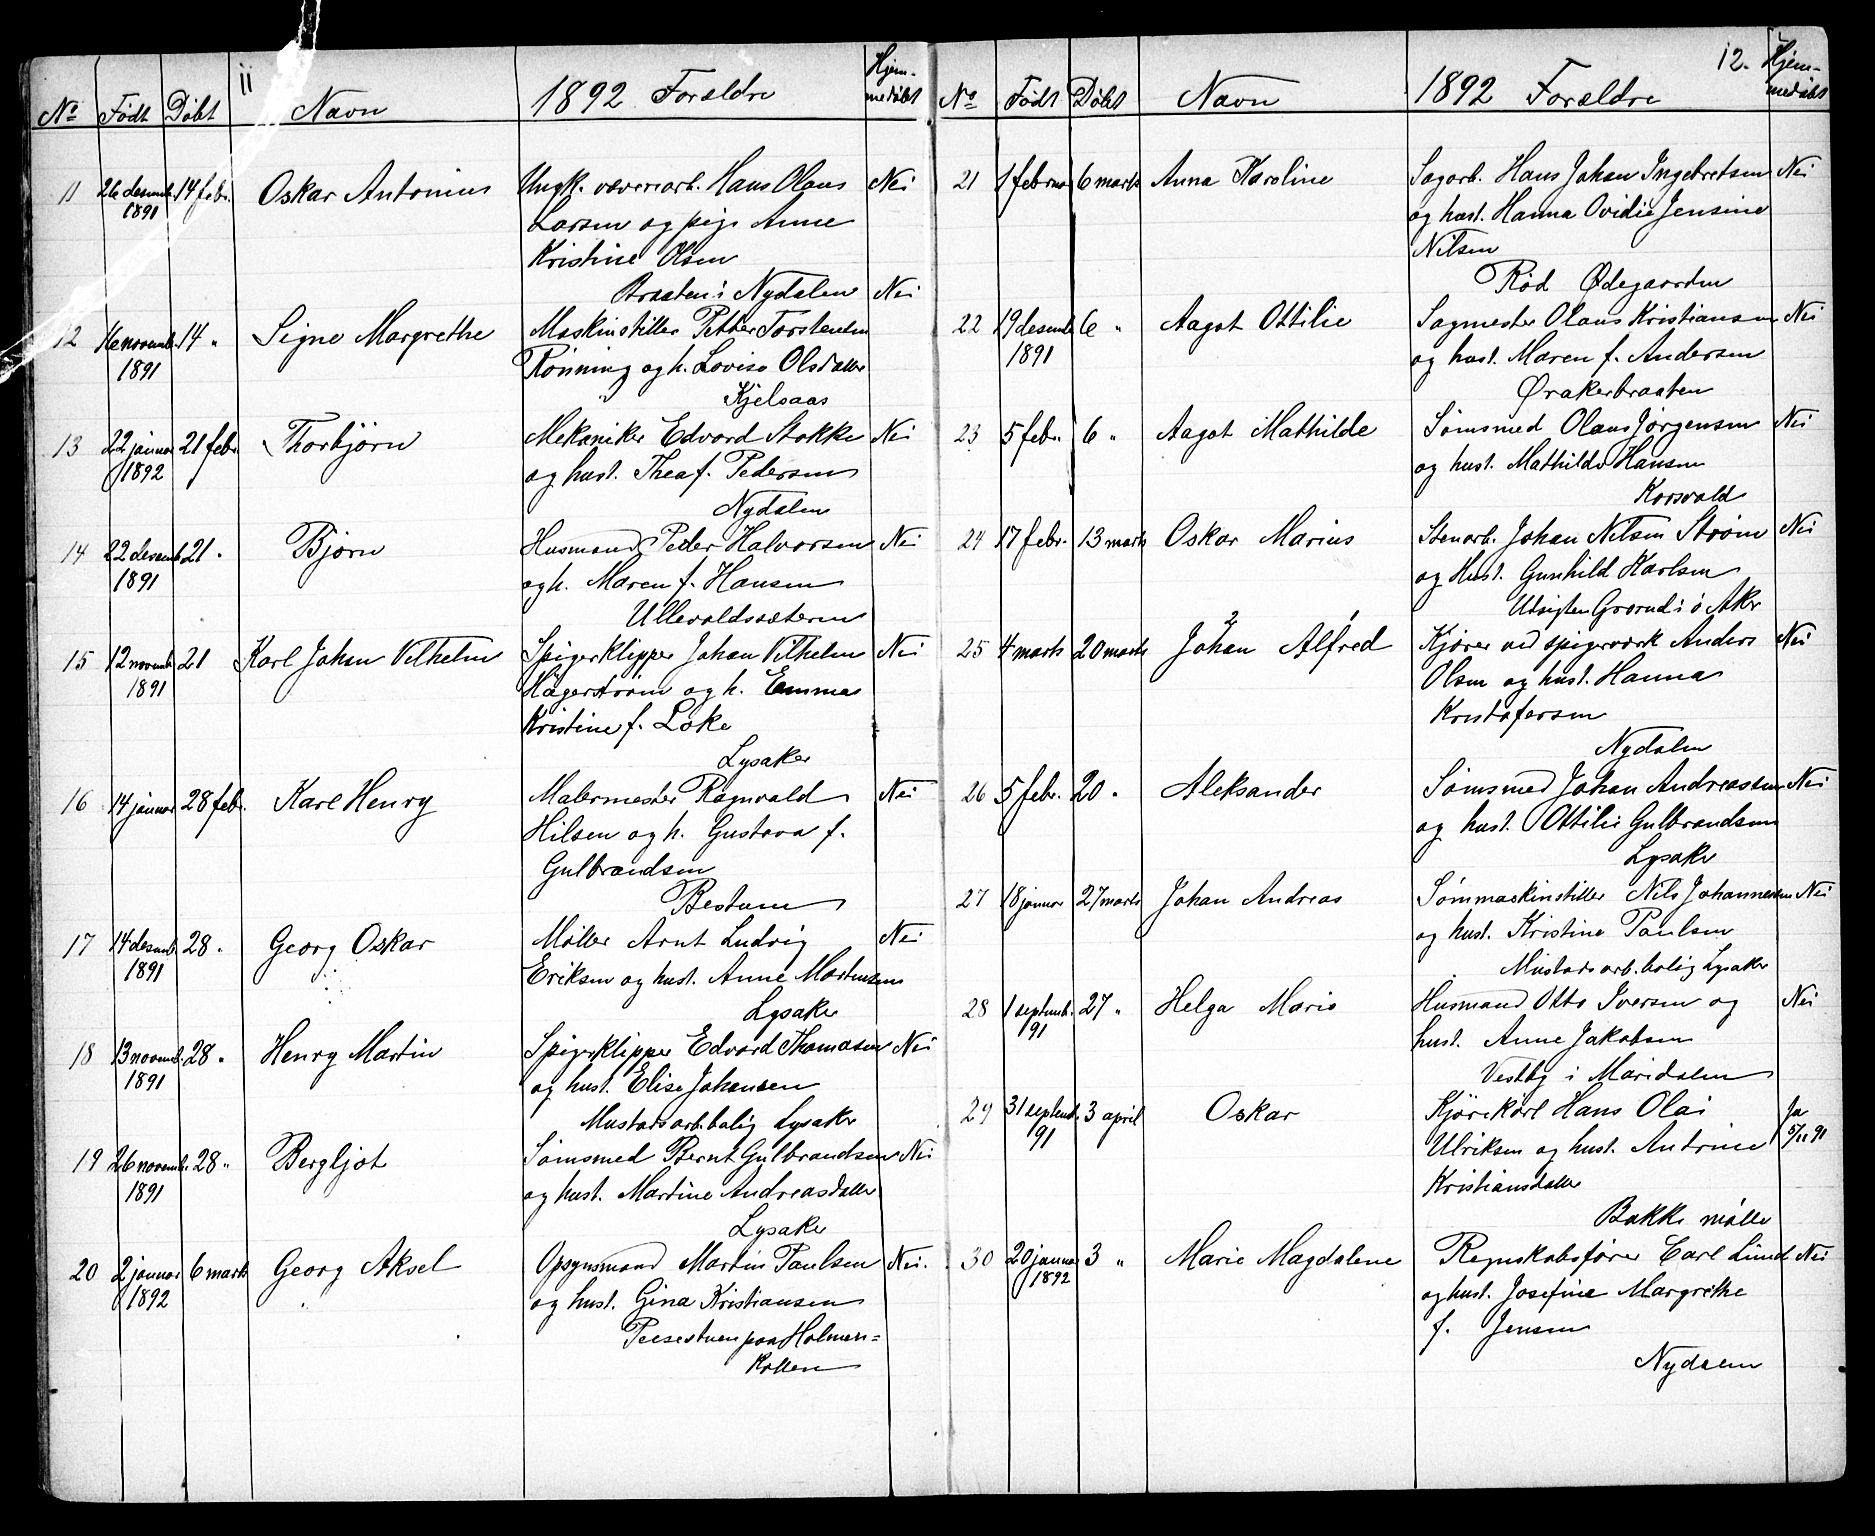 11
No Født Døbt Navn 1892 Forældre Hjem-
medøbt
11 26 desemb. 14 febr. Oskar Antonius Ungk. væveriarb. Hans Olaus Nei
1891 Larsen og pige Anne
Kristine Olsen
Braaten i Nydalen Nei
12 16 novemb. 14 " Signe Margrethe Maskinstiller Petter Torstensen
1891 Rönning og h. Lovise Olsdatter
Kjelsaas
13 22 januar 21 febr. Thorbjørn Mekaniker Edvard Stokke Nei
1892 og hust. Thea f. Pedersen
Nydalen
14 22 desemb. 21 " Bjørn Husmand Peder Halvorsen Nei
1891 og h. Maren f. Hansen
Ullevoldssæteren
15 12 novemb. 21 Karl Johan Vilhelm Spigerklipper Johan Vilhelm Nei
1891 Hägerström og h. Emma
Kristine f. Loke
Lysaker
16 14 januar 28 febr. Karl Henry Malermester Ragnvald Nei
Hilsen og h. Gustava f.
Gulbrandsen
Bestum
17 14 desemb. 28 " Georg Oskar Møller Arnt Ludvig Nei
1891 Eriksen og hust. Anne Martinsen
Lysaker
18 13 novemb. 28 " Henry Martin Spigerklipper Edvard Thomasen Nei
1891 og hust. Elise Johansen
Mustads arb.bolig Lysaker
19 26 novemb. 28 " Bergljot Sømsmed Bernt Gulbrandsen Nei
1891 og hust. Martine Andreasdatter
Lysaker
20 2 januar 6 marts Georg Aksel Opsynsmand Martin Paulsen Nei.
1892 og hust. Gina Kristiansen
Peisestuen paa Holmen=
kollen
12.
No Født Døbt Navn 1892 Forældre Hjem-
medøbt
21 1 februar 6 marts Anna Karoline Sagarb. Hans Johan Ingebretsen Nei
og hust. Hanna Ovidie Jensine
Nilsen
Röd Ødegaarden
22 19 desemb. 6 " Aagot Ottilie Sagmester Olaus Kristiansen Nei
1891 og hust. Maren f. Andersen
Ørakerbraaten
23 5 febr. 6 " Aagot Mathilde Sømsmed Olaus Jørgensen Nei
og hust. Mathilde Hansen
Korsvold
24 17 febr. 13 marts Oskar Marius Stenarb. Johan Nilsen Strøm Nei
og Hust. Gunhild Karlsen
Utsigten Grorud i ö Aker
25 4 marts 20 marts Johan Alfred Kjører ved spigerværk Anders Nei
Olsen og hust. Hanna
Kristofersen
Nydalen
26 5 febr. 20 " Aleksander Sømsmed Johan Andreassen Nei
og hust. Ottilie Gulbrandsen
Lysaker
27 18 januar 27 marts Johan Andreas Sømmaskinstiller Nils Johannesen Nei
og hust. Kristine Paulsen
Mustads arb.bolig Lysaker
28 1 septemb. 27 " Helga Marie Husmand Otto Iversen og Nei
91 hust. Anne Jakobsen
Vestby i Maridalen
29 31 septemb. 3 april Oskar Kjørekarl Hans Olai Ja
91 Ulriksen og hust. Antrine 5/11 91
Kristiansdatter
Bakke mølle
30 20 januar 3 " Marie Magdalene Regnskabsfører Carl Lund Nei
1892 og hust. Josefine Margrethe
f. Jensen
Nydalen